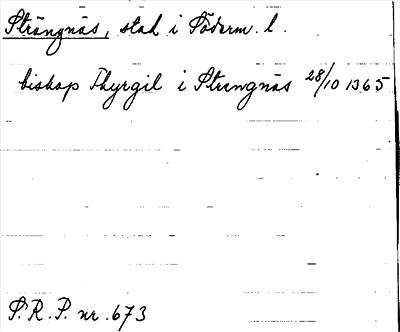 Strängnäs, stad i Söderm. l.
biskop Thyrgil i Strengnäs 28/10 1365
S. R. P. nr. 673